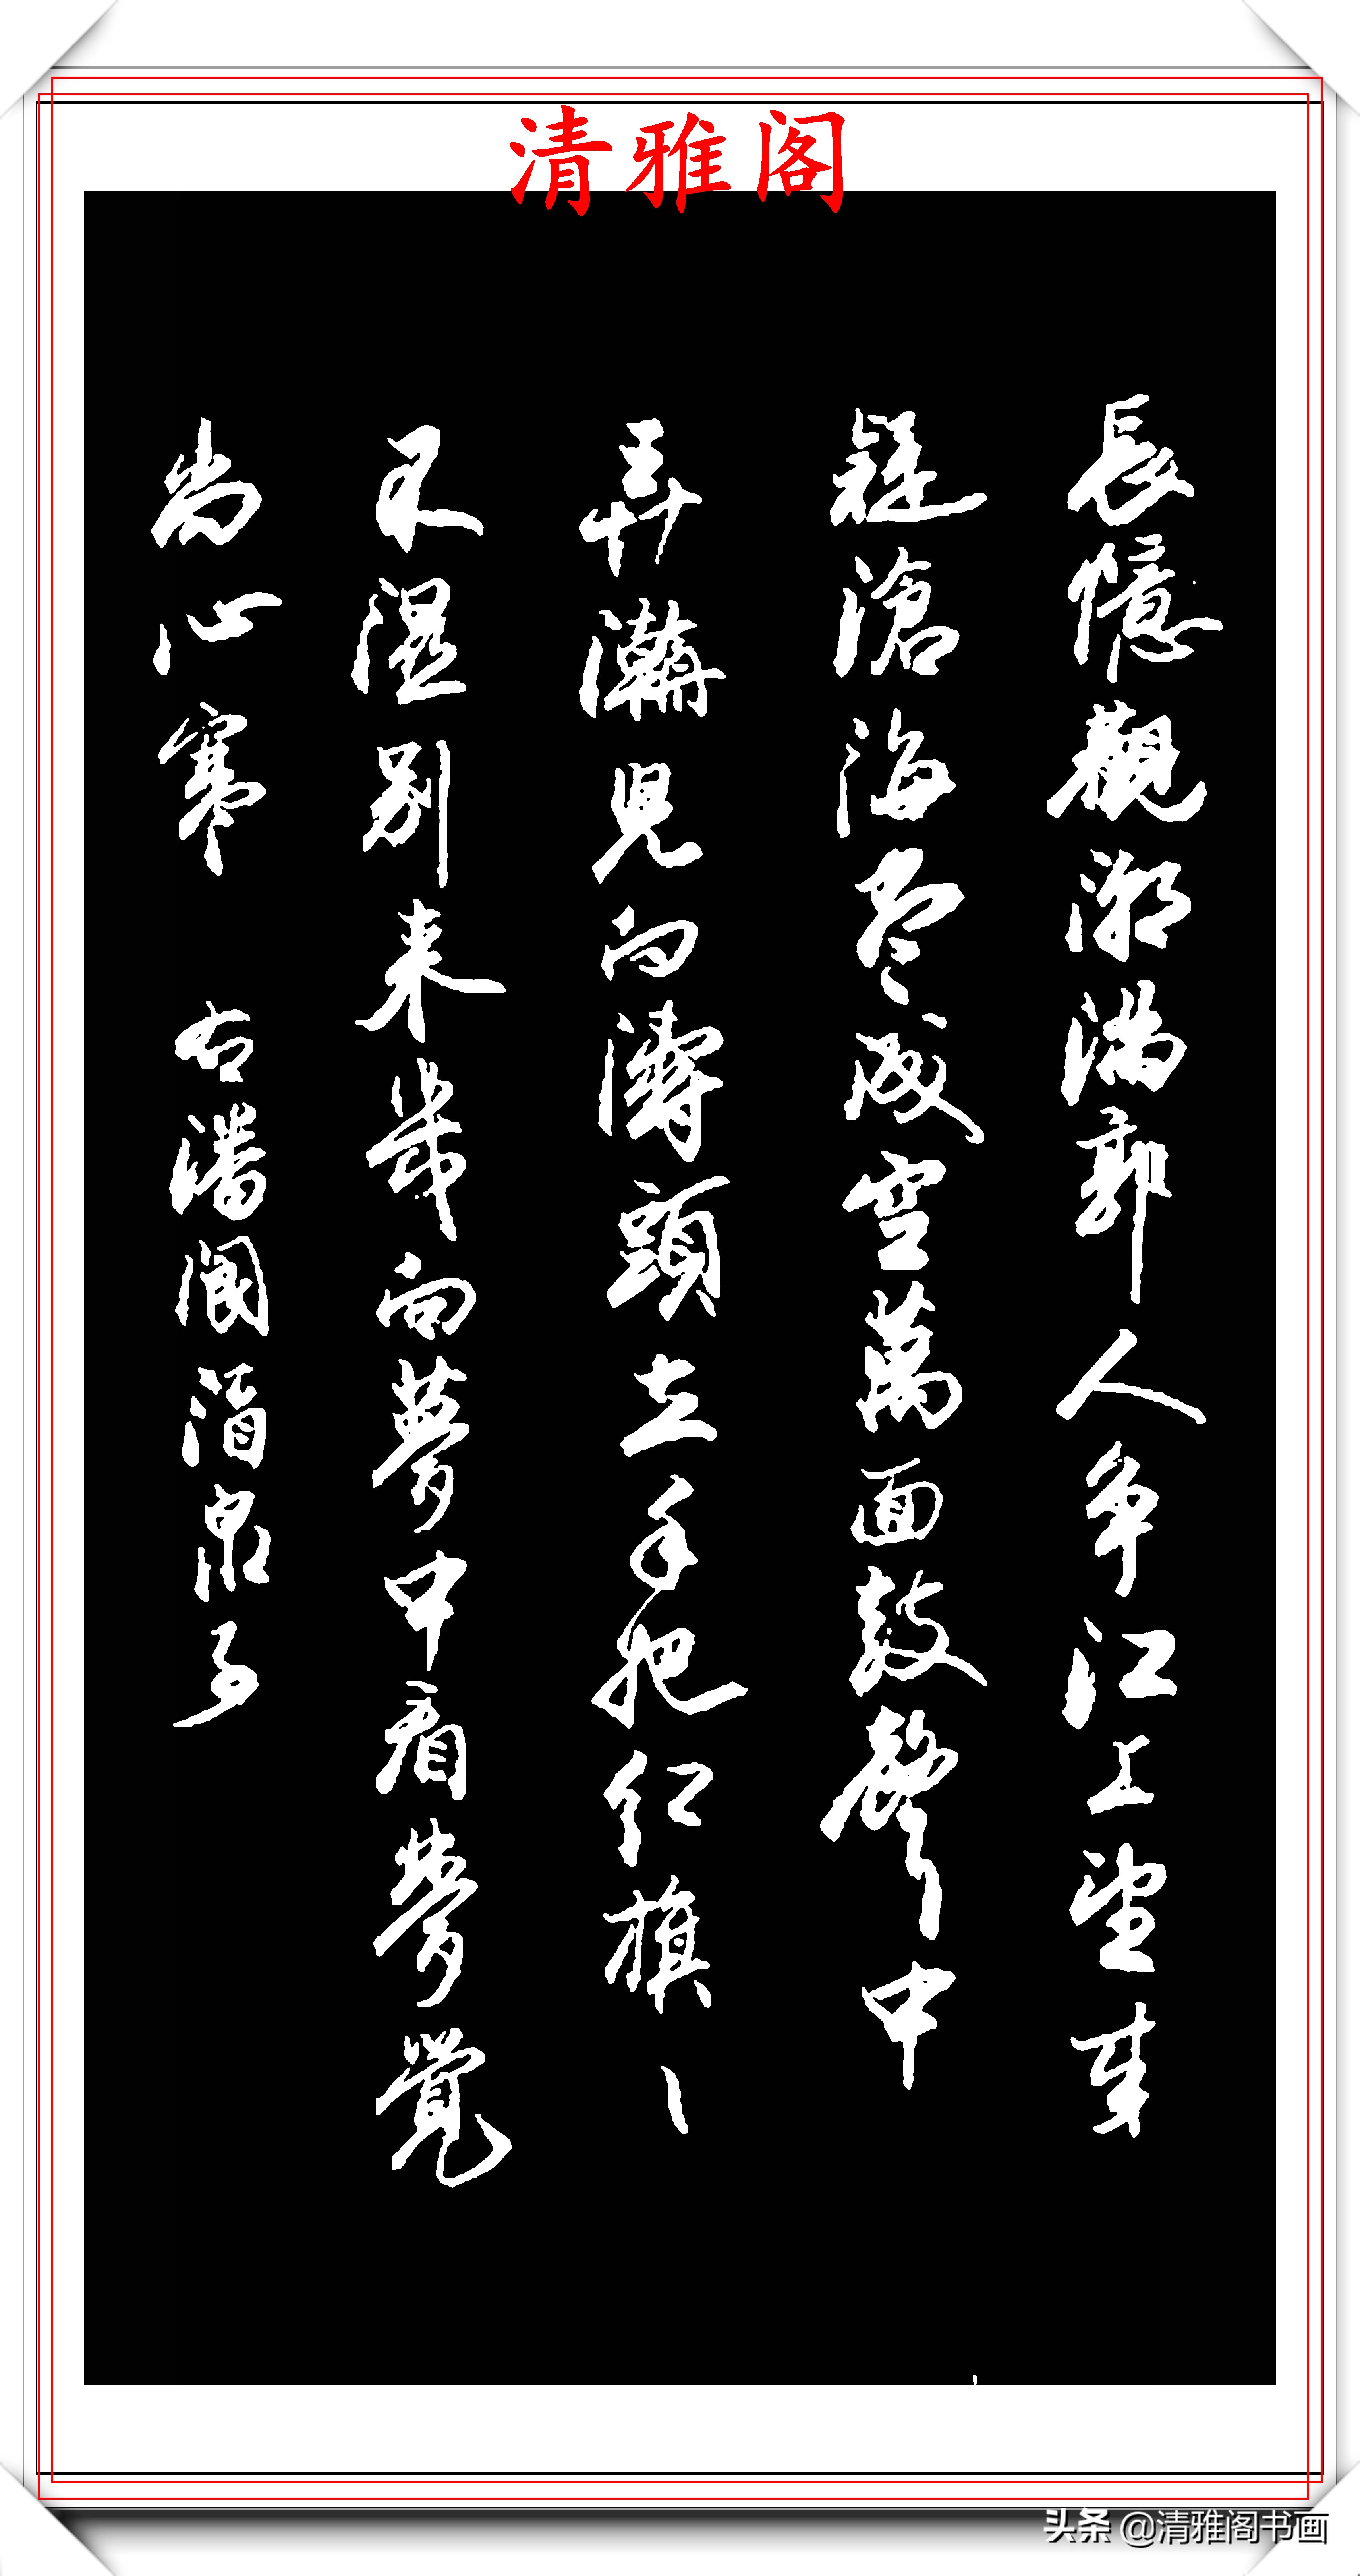 清雅阁
長憶觀潮满郭人争江上望来
疑滄海尽成空萬面鼓聲中
弄潮児向濤頭立手把红旗丶
不湿别来幾向夢中看夢覺
尚心寒 右潘阆酒泉子
头条 @清雅阁书画